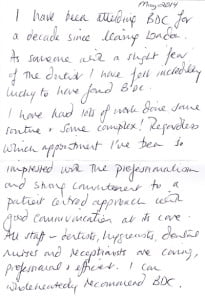 May 2014
I have been attending BDC for
a decade since leaving London.
As someone with a slight fear
of the dentist I have felt incredibly
lucky to have found BDC.
I have had lots of work done some
routine + some complex! Regardless
which appointment I've been so
impressed with the professionalism
and strong commitment to a
patient centred approach with
good communication at its core.
All staff - dentists, hygienists, dental
nurses and receptionists are caring,
professional + efficient. I can
wholeheartedly recommend BDC.